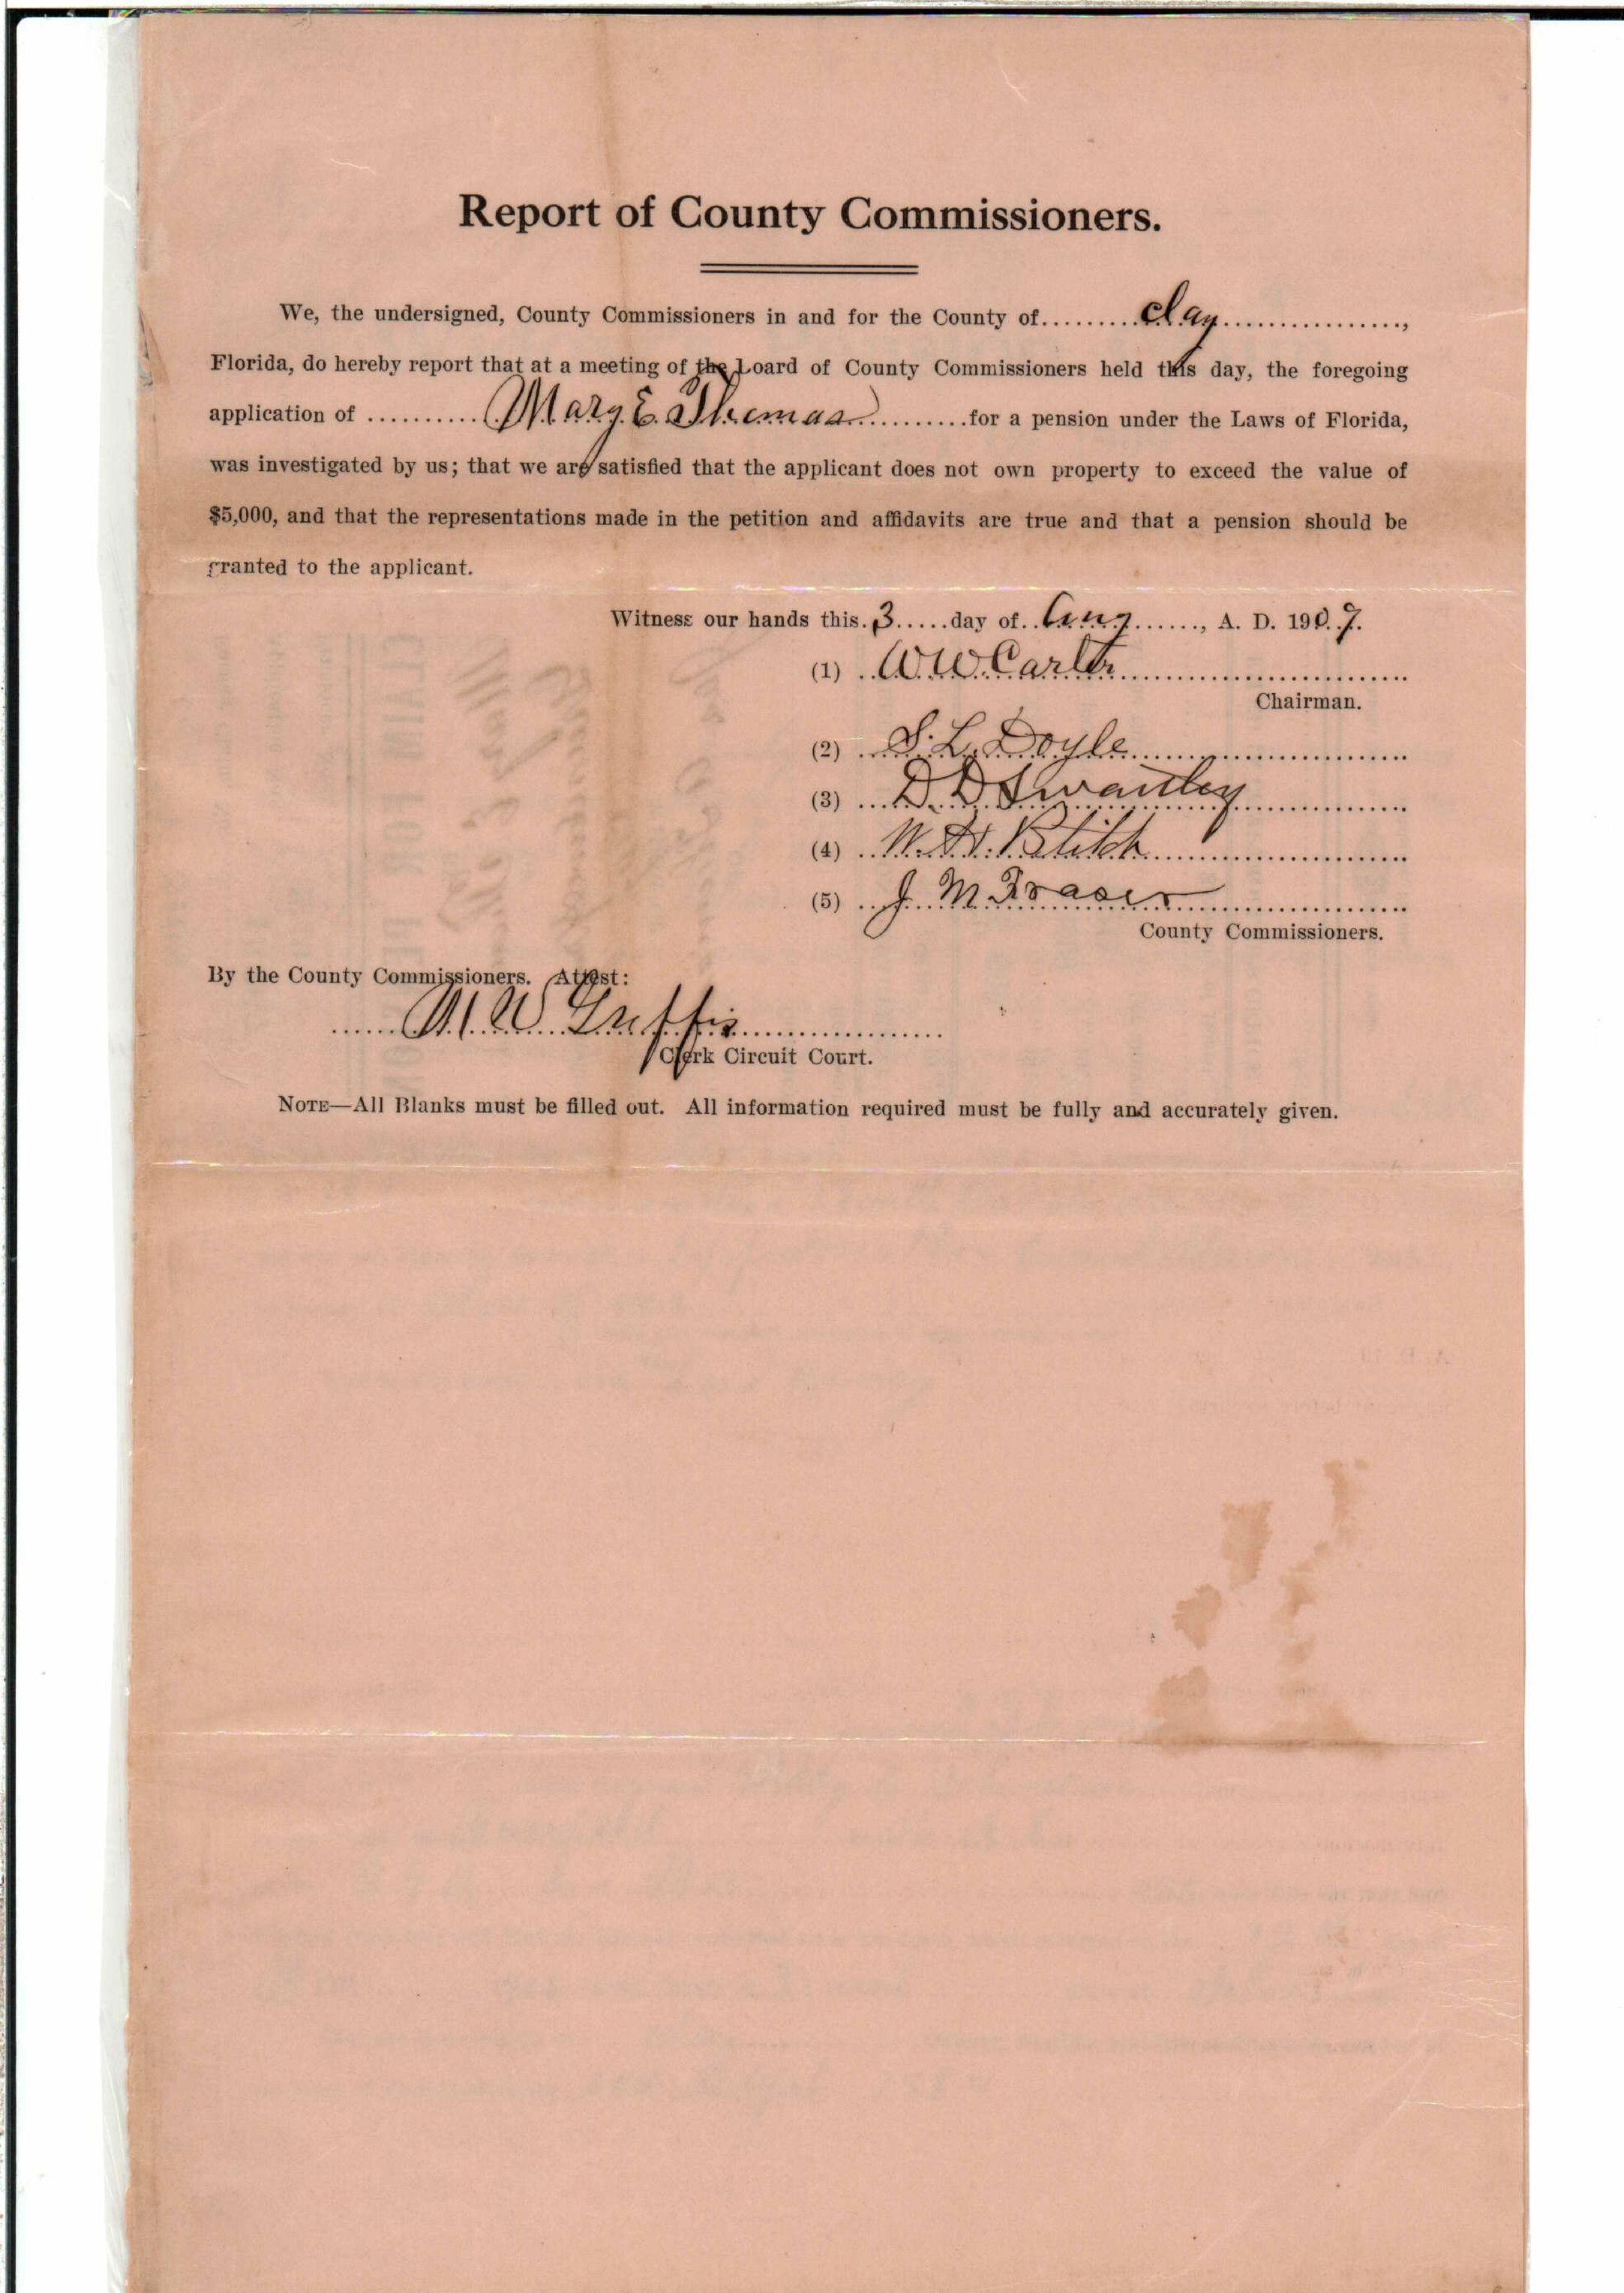 Report of County Commissioners.
We, the undersigned, County Commissioners in and for the County of.........Clay.................,
Florida, do hereby report that at a meeting of the Loard of County Commissioners held this day, the foregoing
application of ..........Mary E. Thomas..........for a pension under the Laws of Florida,
was investigated by us; that we are satisfied that the applicant does not own property to exceed the value of
$5,000, and that the representations made in the petition and affidavits are true and that a pension should be
granted to the applicant.
Witness our hands this.3.....day of..Aug......., A. D. 190.7.
(1) W W Carter
Chairman.
(2) S. L. Doyle
(3) D. D. Swantley
(4) W. H. Blitch
(5) J. M. Fraser
County Commissioners.
By the County Commissioners. Attest:
W. Griffis
Clerk Circuit Court.
NOTE—All Blanks must be filled out. All information required must be fully and accurately given.